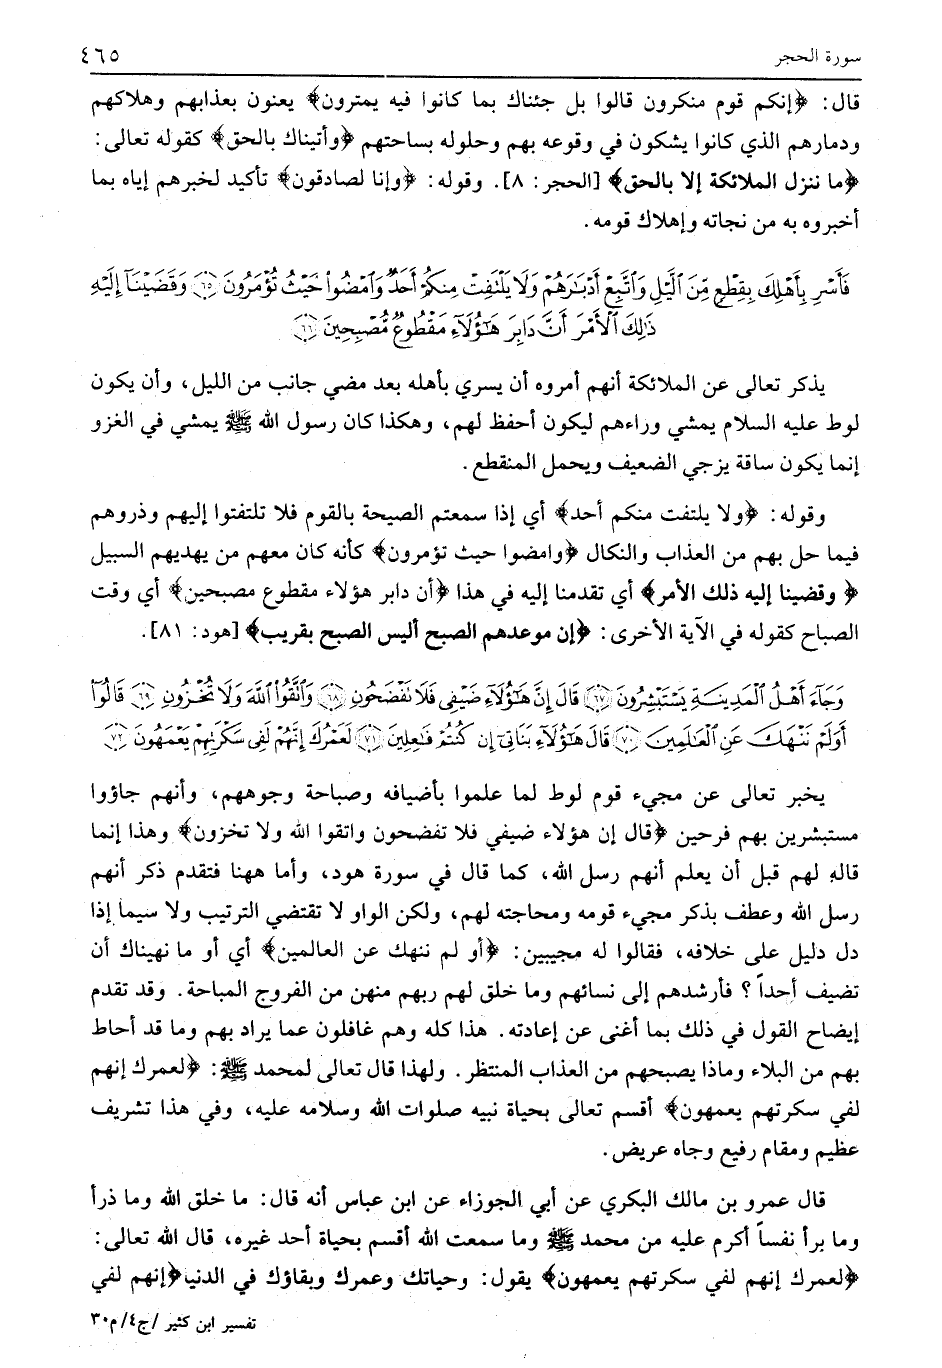 سورة الحجر ٤٦٥
قال: ﴿إنكم قوم منكرون قالوا بل جئناك بما كانوا فيه يمترون﴾ يعنون بعذابهم وهلاكهم
ودمارهم الذي كانوا يشكون في وقوعه بهم وحلوله بساحتهم ﴿وأتيناك بالحق﴾ كقوله تعالى:
﴿ما ننزل الملائكة إلا بالحق﴾ [الحجر: ٨]. وقوله: ﴿وإنا لصادقون﴾ تأكيد لخبرهم إياه بما
أخبروه به من نجاته وإهلاك قومه.
فَأَسْرِ بِأَهْلِكَ بِقِطْعٍ مِّنَ ٱلَّيْلِ وَٱتَّبِعْ أَدْبَـٰرَهُمْ وَلَا يَلْتَفِتْ مِنكُمْ أَحَدٌ وَٱمْضُوا۟ حَيْثُ تُؤْمَرُونَ ﴿٦٥﴾ وَقَضَيْنَآ إِلَيْهِ
ذَٰلِكَ ٱلْأَمْرَ أَنَّ دَابِرَ هَـٰٓؤُلَآءِ مَقْطُوعٌ مُّصْبِحِينَ ﴿٦٦﴾
يذكر تعالى عن الملائكة أنهم أمروه أن يسري بأهله بعد مضي جانب من الليل، وأن يكون
لوط عليه السلام يمشي وراءهم ليكون أحفظ لهم، وهكذا كان رسول الله ﷺ يمشي في الغزو
إنما يكون ساقة يزجي الضعيف ويحمل المنقطع.
وقوله: ﴿ولا يلتفت منكم أحد﴾ أي إذا سمعتم الصيحة بالقوم فلا تلتفتوا إليهم وذروهم
فيما حل بهم من العذاب والنكال ﴿وامضوا حيث تؤمرون﴾ كأنه كان معهم من يهديهم السبيل
﴿وقضينا إليه ذلك الأمر﴾ أي تقدمنا إليه في هذا ﴿أن دابر هؤلاء مقطوع مصبحين﴾ أي وقت
الصباح كقوله في الآية الأخرى: ﴿إن موعدهم الصبح أليس الصبح بقريب﴾ [هود: ٨١].
وَجَآءَ أَهْلُ ٱلْمَدِينَةِ يَسْتَبْشِرُونَ ﴿٦٧﴾ قَالَ إِنَّ هَـٰٓؤُلَآءِ ضَيْفِى فَلَا تَفْضَحُونِ ﴿٦٨﴾ وَٱتَّقُوا۟ ٱللَّهَ وَلَا تُخْزُونِ ﴿٦٩﴾ قَالُوٓا۟
أَوَلَمْ نَنْهَكَ عَنِ ٱلْعَـٰلَمِينَ ﴿٧٠﴾ قَالَ هَـٰٓؤُلَآءِ بَنَاتِىٓ إِن كُنتُمْ فَـٰعِلِينَ ﴿٧١﴾ لَعَمْرُكَ إِنَّهُمْ لَفِى سَكْرَتِهِمْ يَعْمَهُونَ ﴿٧٢﴾
يخبر تعالى عن مجيء قوم لوط لما علموا بأضيافه وصباحة وجوههم، وأنهم جاؤوا
مستبشرين بهم فرحين ﴿قال إن هؤلاء ضيفي فلا تفضحون واتقوا الله ولا تخزون﴾ وهذا إنما
قاله لهم قبل أن يعلم أنهم رسل الله، كما قال في سورة هود، وأما ههنا فتقدم ذكر أنهم
رسل الله وعطف بذكر مجيء قومه ومحاجته لهم، ولكن الواو لا تقتضي الترتيب ولا سيما إذا
دل دليل على خلافه، فقالوا له مجيبين: ﴿أو لم ننهك عن العالمين﴾ أي أو ما نهيناك أن
تضيف أحداً؟ فأرشدهم إلى نسائهم وما خلق لهم ربهم منهن من الفروج المباحة. وقد تقدم
إيضاح القول في ذلك بما أغنى عن إعادته. هذا كله وهم غافلون عما يراد بهم وما قد أحاط
بهم من البلاء وماذا يصبحهم من العذاب المنتظر. ولهذا قال تعالى لمحمد ﷺ: ﴿لعمرك إنهم
لفي سكرتهم يعمهون﴾ أقسم تعالى بحياة نبيه صلوات الله وسلامه عليه، وفي هذا تشريف
عظيم ومقام رفيع وجاه عريض.
قال عمرو بن مالك البكري عن أبي الجوزاء عن ابن عباس أنه قال: ما خلق الله وما ذرأ
وما برأ نفساً أكرم عليه من محمد ﷺ وما سمعت الله أقسم بحياة أحد غيره، قال الله تعالى:
﴿لعمرك إنهم لفي سكرتهم يعمهون﴾ يقول: وحياتك وعمرك وبقاؤك في الدنيا ﴿إنهم لفي
تفسير ابن كثير /ج٤/ م٣٠